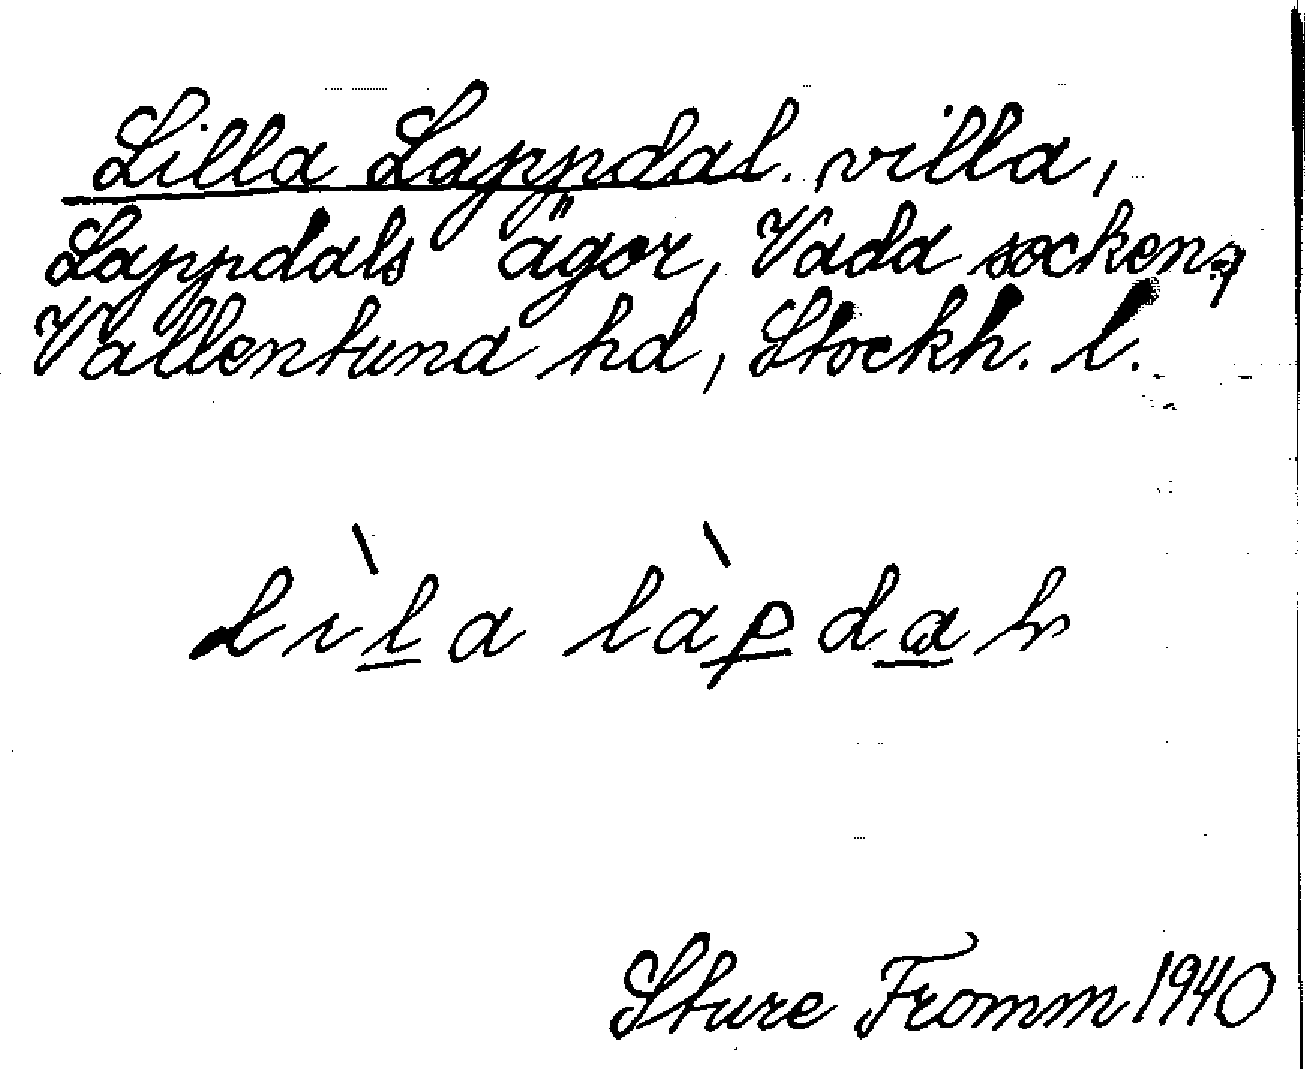 Lilla Lappdal. villa,
Lappdals ägor, Vada socken,
Vallentuna hd, Stockh. l.
lìla làpdal
Sture Fromm 1940